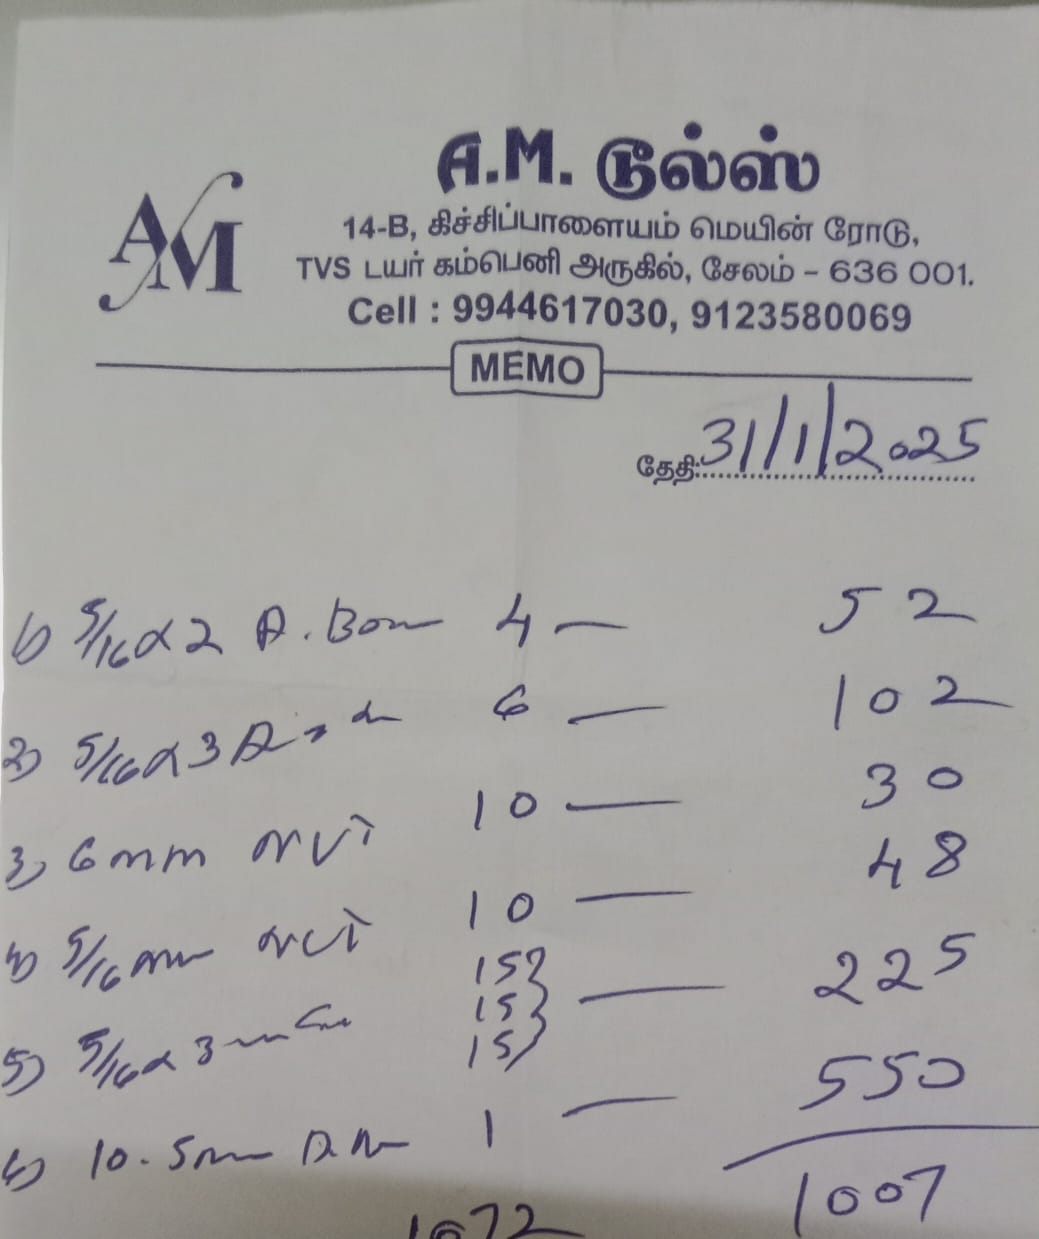 AM
A.M. டூல்ஸ்
14-B, கிச்சிப்பாளையம் மெயின் ரோடு,
TVS டயர் கம்பெனி அருகில், சேலம் - 636 001.
Cell : 9944617030, 9123580069
MEMO
தேதி: 31/1/2025
1) 5/16 x 2 A. 4 — 52
2) 5/16 x 3 6 — 102
3) 6mm 10 — 30
4) 5/16 10 — 48
5) 5/16 x 3 15 15 15 — 225
6) 10.5mm 1 — 550
1007
1072